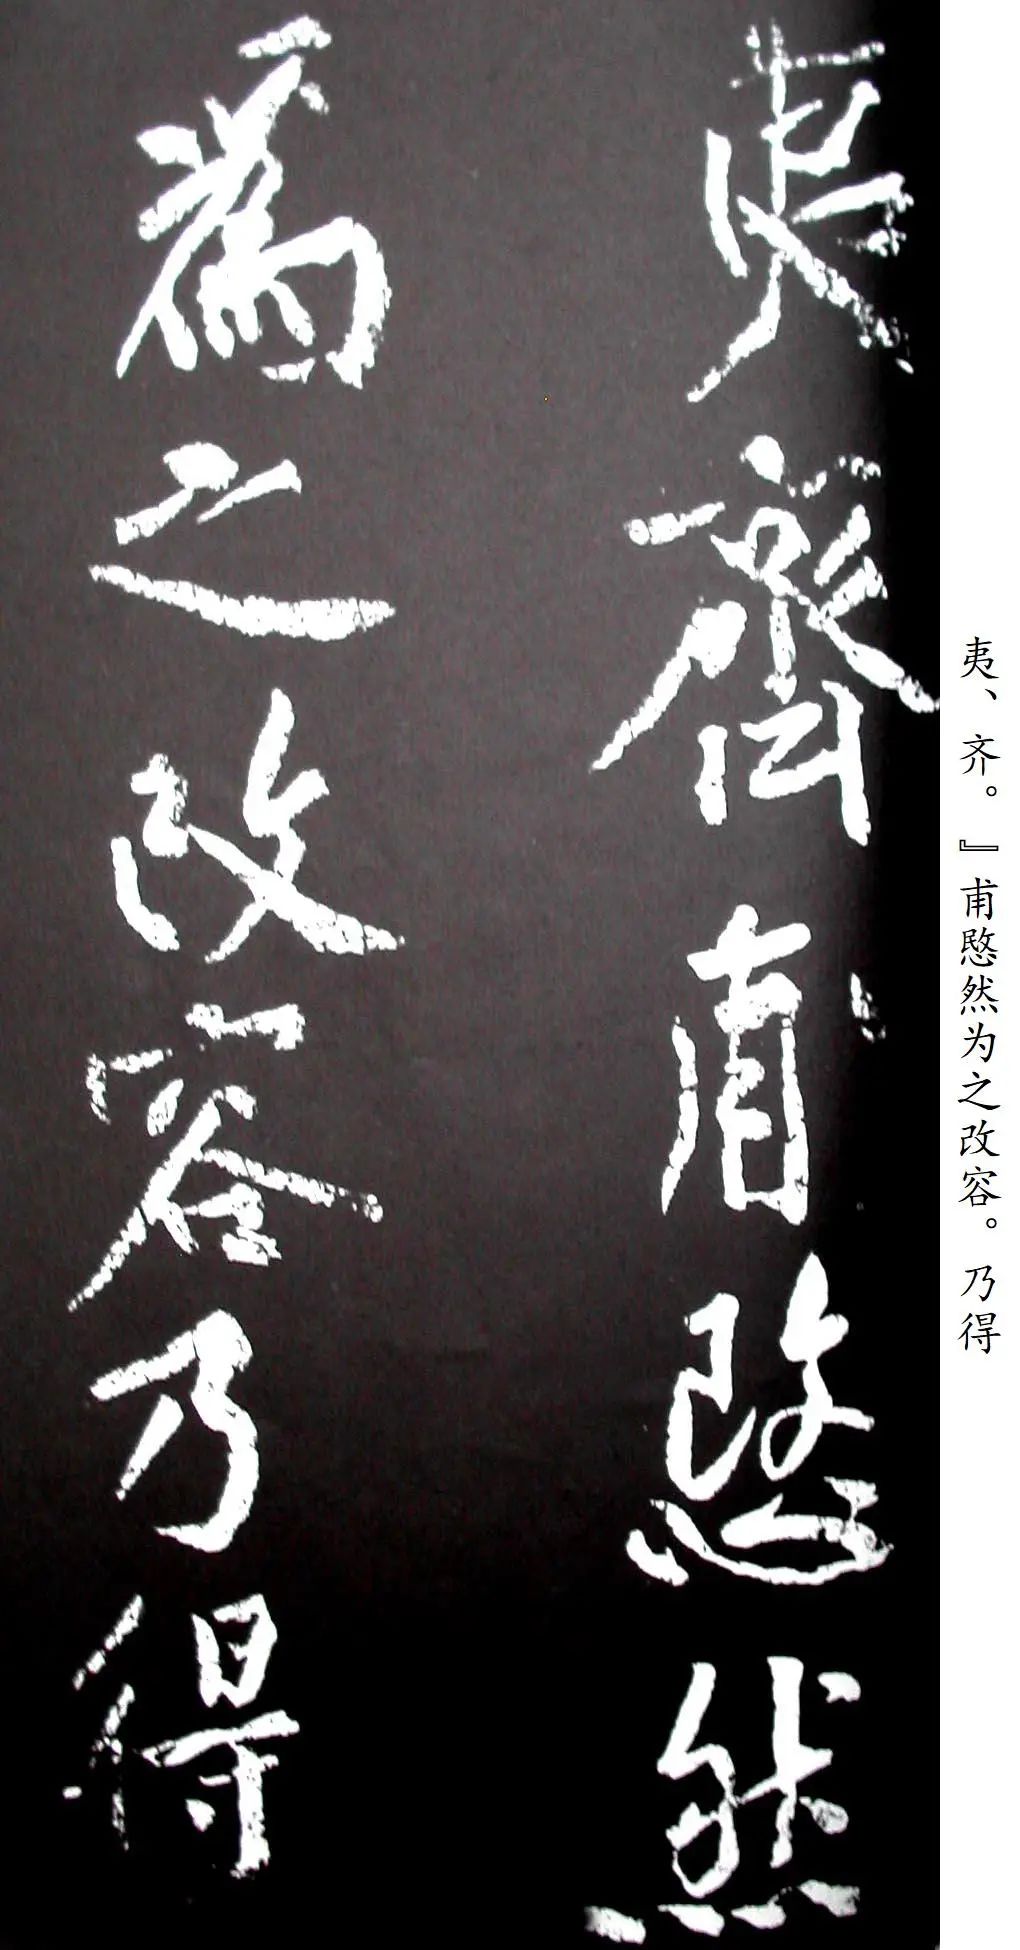 夷齊甫愍然
為之改容乃得
夷、齐。』甫愍然为之改容。乃得